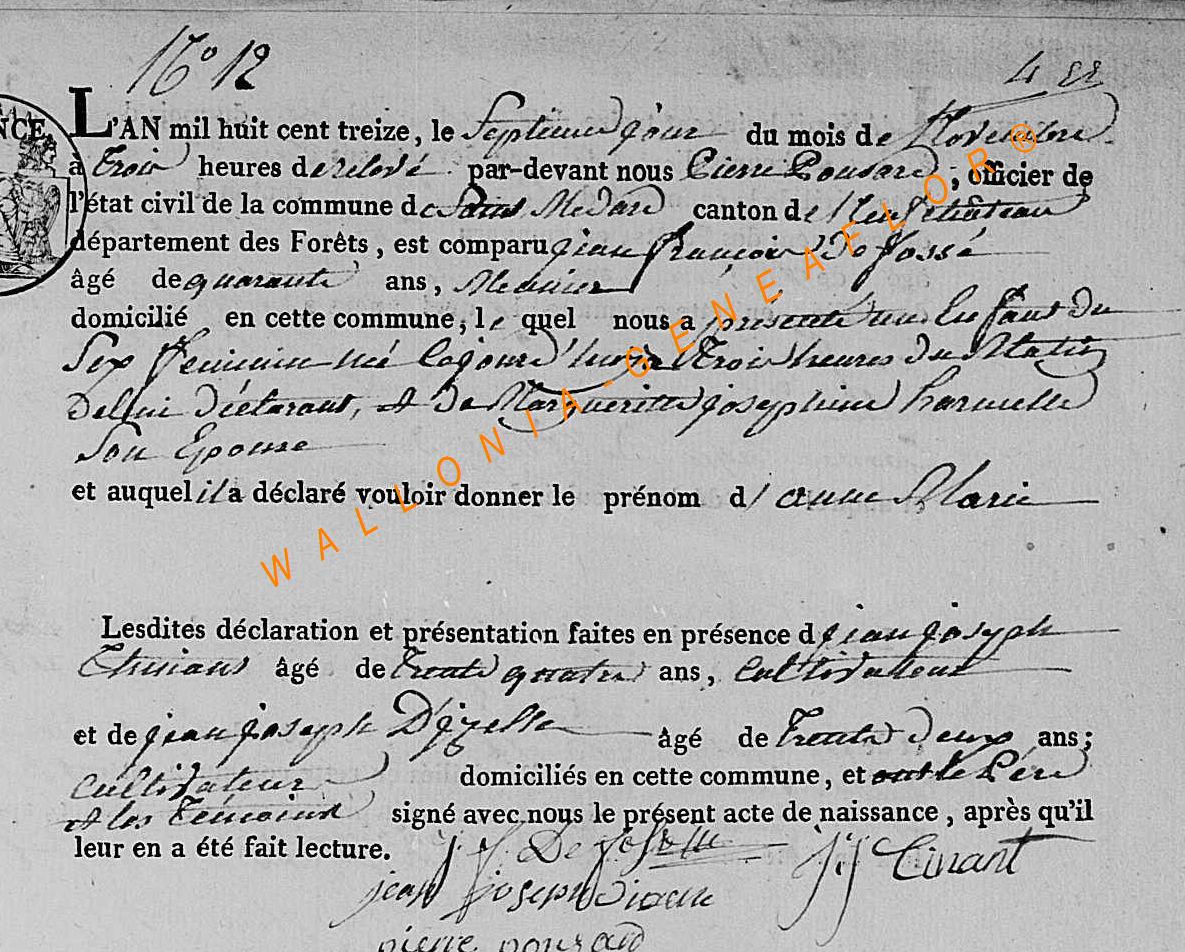 N° 12
L'AN mil huit cent treize, le Septieme jour du mois de Novembre
à Trois heures de relevé par-devant nous Pierre Ponsard, officier de
l'état civil de la commune de Saint Medard canton de Neufchâteau
département des Forêts, est comparu jean françois De fossé
âgé de quarante ans, Meunier
domicilié en cette commune, le quel nous a présenté un Enfant du
Sex feminin né Cejourd'huy à Trois heures du Matin
Delui Déclarant, et de Margueritte josephine harnelle
Son Epouse
et auquel il a déclaré vouloir donner le prénom d' anne Marie
Lesdites déclaration et présentation faites en présence d jean joseph
âgé de Trente quatre ans, Cultivateur
et de jean joseph âgé de Trente Deux ans;
Cultivateur domiciliés en cette commune, et ont le Père
et les Temoins signé avec nous le présent acte de naissance, après qu'il
leur en a été fait lecture.
j f De fosse J J
jean joseph
pierre ponsard
NCE.
WALLONIA-GENEAFLOR®